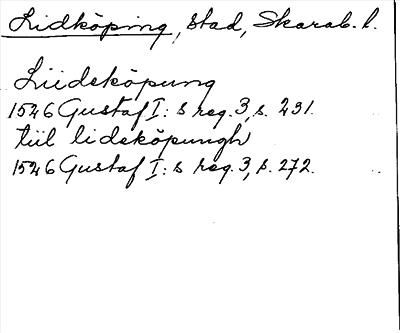 Lidköping, stad, Skarab. l.
Liideköpung
1526 Gustaf I: s reg. 3, s. 231.
tiil lideköpungh
1526 Gustaf I: s reg. 3, s. 272.